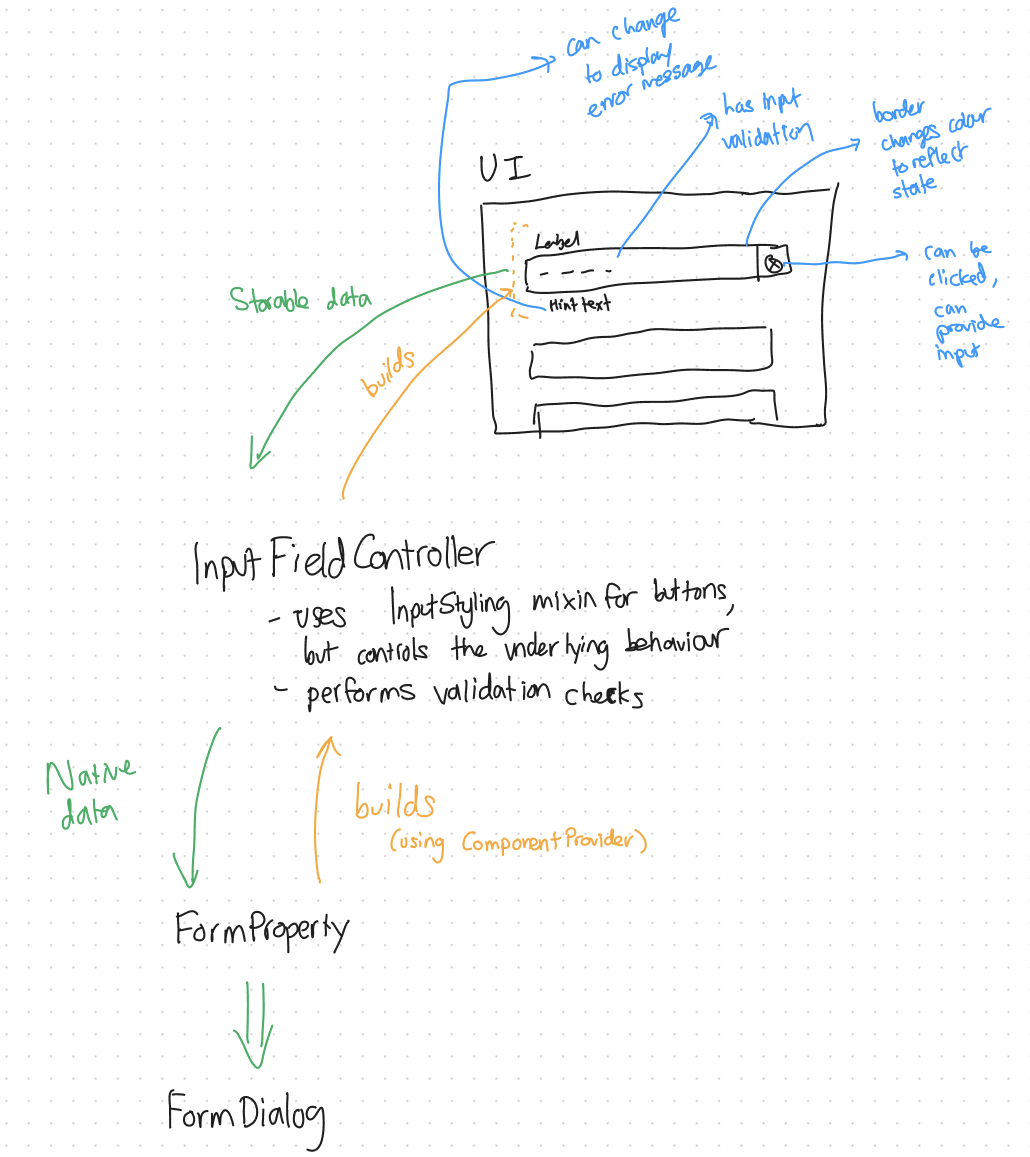 can change
to display
error message
has input
validation
border
changes colour
to reflect
state
UI
Label
can be
clicked,
can
provide
input
Storable data
Hint text
builds
InputFieldController
- uses InputStyling mixin for buttons,
but controls the underlying behaviour
- performs validation checks
Native
data
builds
(using ComponentProvider)
FormProperty
FormDialog